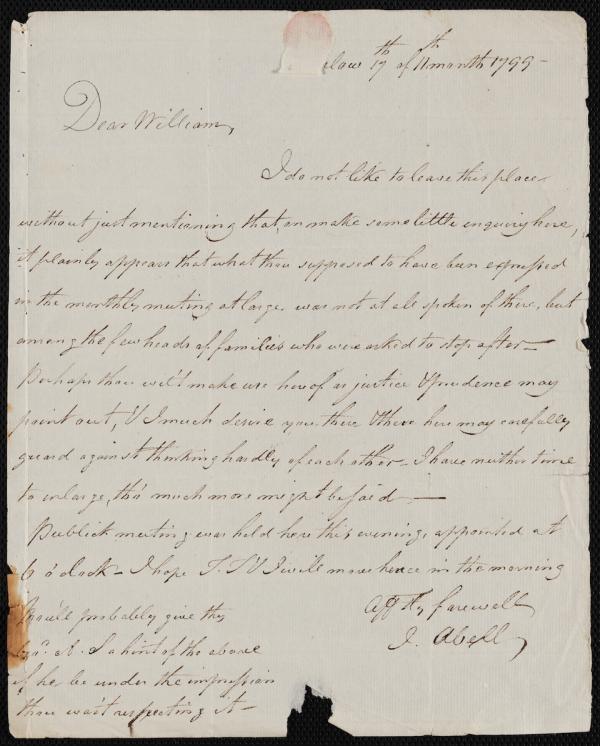 law 17th of 11 month 1799 -
Dear William,
I do not like to leave this place
without just mentioning that, on make some little enquiry here,
it plainly appears that what thou supposed to have been expressed
in the monthly meeting at large, was not at all spoken of there, but
among the few heads of families who were asked to stop after —
Perhaps thou wil't make use hereof as justice & prudence may
point out, & I much desire you there & those here may carefully
guard against thinking hardly of each other - I have neither time
to enlarge, tho' much more might be said —
Publick meeting was held here this evening, appointed at
6 o'clock - I hope T. S & I will move hence in the morning
Affly farewell
J. Abell
Thou'll probably give thy
A. S a hint of the above
if he be under the impression
thou was't respecting it -